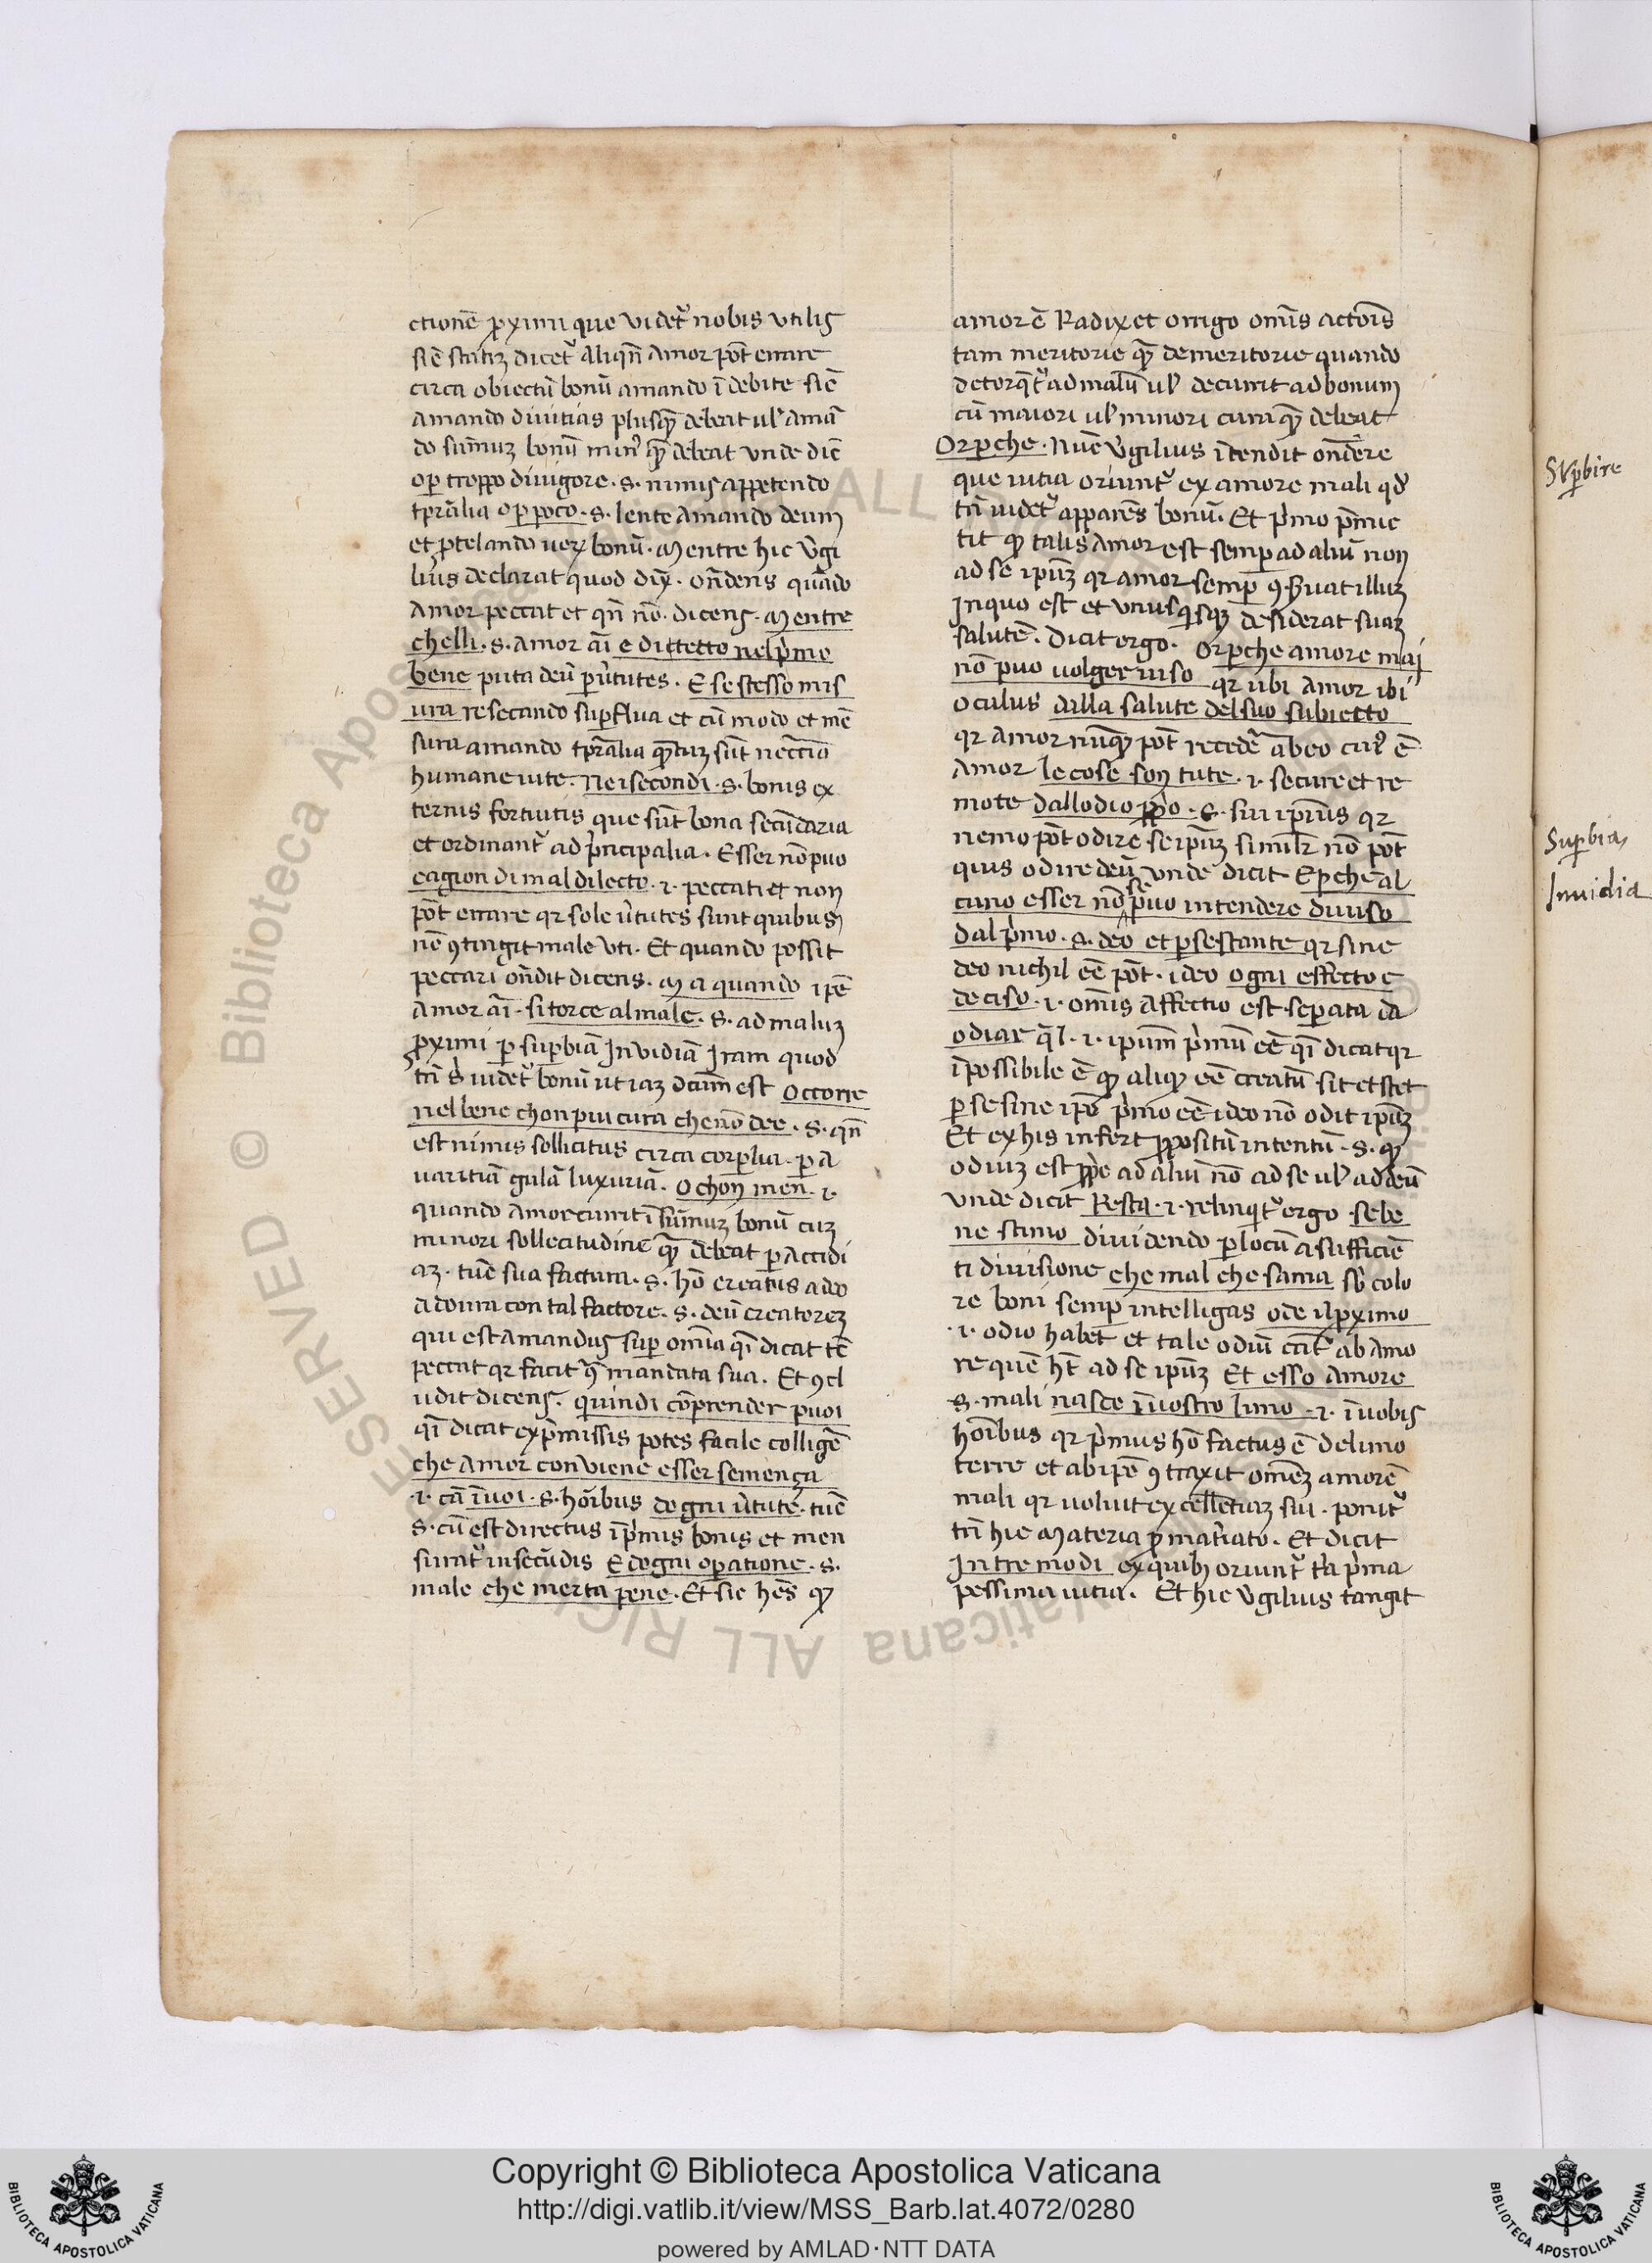 ctionē proximi que videt᷑ nobis vtilis
sīc statiꝫ dicet᷑ aliqn̄ amor pōt errare
circa obiectū bonū amando īdebite sic̄
amando divitias plusqꝫ debeat ul᷑ amā
do sum̄uꝫ bonū min᷑ qꝫ debeat vnde dic̄
o per troppo di uigore .s. nimis appetendo
tpr̄alia o per poco .s. lente amando deum
et protelando ueꝝ bonū. Mentre hic v᷑gi
lius declarat quod dix᷑. on̄dens quādo
amor peccat et qn̄ nō. dicens. Mentre
chelli .s. amor aī e dirtetto nel pr̄mo
bene puta deū per u᷑tutes. E se stesso mis
ura resecando suꝑflua et cū modo et mē
sura amando tpr̄alia qꝫtuꝫ sūt necc̄ia
humane uite. Ne i secondi .s. bonis ex
ternis fortuitis que sūt bona secūdaria
et ordinant᷑ ad pr̄ncipalia. Esser nō puo
cagion di mal dilecto .i. peccati et non
pōt errare qr sole u᷑tutes sunt quibus
nē ꝯtingit male vti. Et quando possit
peccari on̄dit dicens. Ma quando ipē
amor aī. si torce al male .s. ad maluꝫ
proximi ꝑ suꝑbiā Invidiā Iram quod
tn̄ s᷑ videt᷑ bonū ut iaꝫ dc̄um est Occorre
nel bene chon piu cura che nō dee .s. qn̄
est nimis sollicitus circa corꝑlia. ꝑ a
uaritiā gulā luxuriā. O chon men .i.
quando amor currit ī sum̄uꝫ bonū cuꝫ
minori sollecitudine qꝫ debeat ꝑ accidi
aꝫ. tūc sua factura .s. hō creatus a deo
adoura con tal factore .s. deū creatoreꝫ
qui est amandus suꝑ omīa qī dicat tc̄
peccat qr facit ꝯᷓ mandata sua. Et ꝯcl
udit dicens. quindi cōprender puoi
qī dicat ex pr̄missis potes facile colligē
che amor conviene esser semença
.i. cā ī uoi .s. hōibus dogni u᷑tute. tūc
.s. cū est directus ī pr̄mis bonis et men
surat᷑ in secūdis E dogni oꝑatione .s.
male che merta pene. Et sic hēs qꝫ
amor ē Radix et origo omīs actōis
tam meritorie qꝫ demeritorie quando
detorqꝫt᷑ ad malū ul᷑ decurrit ad bonum
cū maiori ul᷑ minori cura qꝫ debeat
Or perche. Nūc v᷑gilius ītendit on̄dere
que uitia oriunt᷑ ex amore mali qd᷑
tn̄ uidet᷑ apparēs bonū. Et pr̄mo pr̄mic
tit qꝫ talis amor est semper ad aliū non
ad se ipūꝫ qr amor semper ꝯseruat illuꝫ
In quo est et vnusqisqꝫ desiderat suaꝫ
salutē. Dicit ergo. Or perche amore mai
nō puo uolger uiso qr ubi amor ibi
oculus dalla salute del suo subietto
qr amor nūqꝫ pōt recedē ab eo cui᷑ ē
amor le cose son tute .i. secure et re
mote dall odio ꝓpio .s. sui ipīus qr
nemo pōt odire se ipūꝫ simil᷑r nō pōt
quis odire deū vnde dicit E perche al
cuno esser nō se puo intendere diviso
dal pr̄mo .s. deo et per se stante qr sine
deo nichil eē pōt. ideo ogni effecto e
deciso .i. omīs affectio est seperata da
odiar q̄l .i. ipum pr̄mū eē qī dicat qr
īpossibile ē qꝫ aliqꝫ eē creatū sit et stet
per se sine ipō pr̄mo eē ideo nō odit ipūꝫ
Et ex his infert propositū intentū .s. qꝫ
odiuꝫ est ꝓpīe ad aliū nō ad se ul᷑ ad deū
Vnde dicit Resta .i. relinqit᷑ ergo se be
ne stimo dividendo ꝑ locū a sufficiē
ti divisione che mal che sama sb̄ colo
re boni semper intelligas ode il proximo
.i. odio habet᷑ et tale odiū cāt᷑ ab amo
re quē hēt ad se ipūꝫ Et esso amore
.s. mali nasce ī uostro limo .i. ī uobis
hōibus qr pr̄mus hō factus ē de limo
terre et ab ipē ꝯtraxit omēꝫ amorē
mali qr voluit excellētiaꝫ sui. ponit᷑
tn̄ hic materia pro mat᷑iato. Et dicit
In tre modi ex quibꝫ oriunt᷑ tr̄a pr̄ma
pessima uitia. Et hic v᷑gilius tangit
Sup̱bire
Superbia
Inuidia
Copyright © Biblioteca Apostolica Vaticana
http://digi.vatlib.it/view/MSS_Barb.lat.4072/0280
powered by AMLAD·NTT DATA
BIBLIOTECA APOSTOLICA VATICANA
BIBLIOTECA APOSTOLICA VATICANA
© Biblioteca Apostolica Vaticana ALL RIGHTS RESERVED